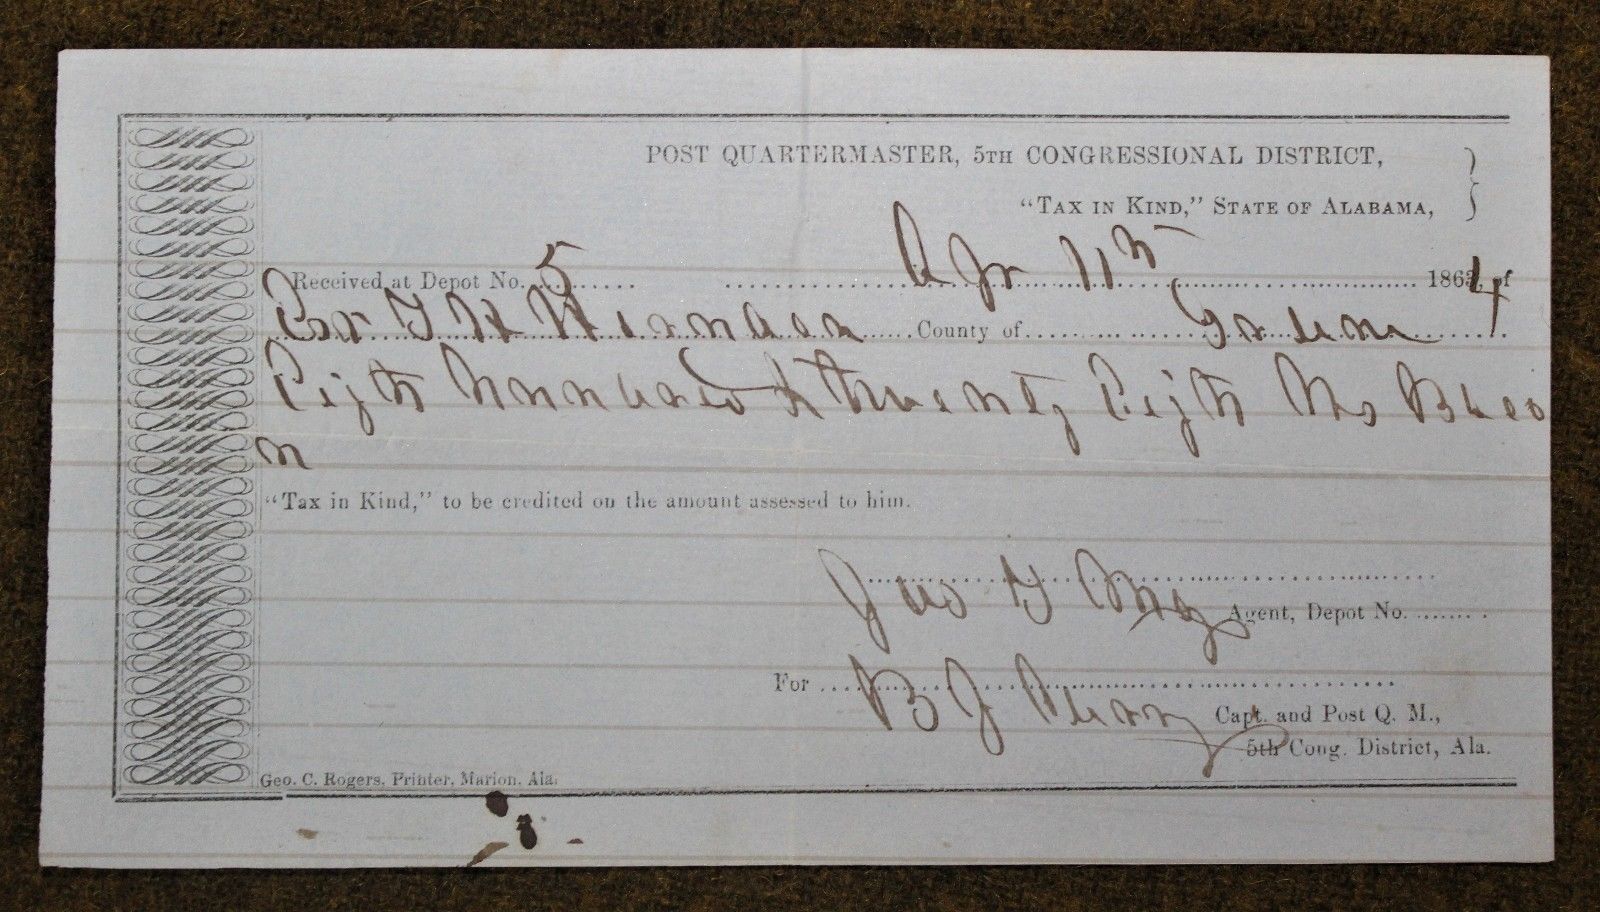 POST QUARTERMASTER, 5TH CONGRESSIONAL DISTRICT,
"TAX IN KIND," STATE OF ALABAMA,
Received at Depot No. 5 Apr 11th 1864, of
T H County of Green
Eight hundred & twenty Eight lbs Baco
n
"Tax in Kind," to be credited on the amount assessed to him.
Jno T Agent, Depot No.
For B J Perry Capt. and Post Q. M.,
5th Cong. District, Ala.
Geo. C. Rogers, Printer, Marion, Ala.